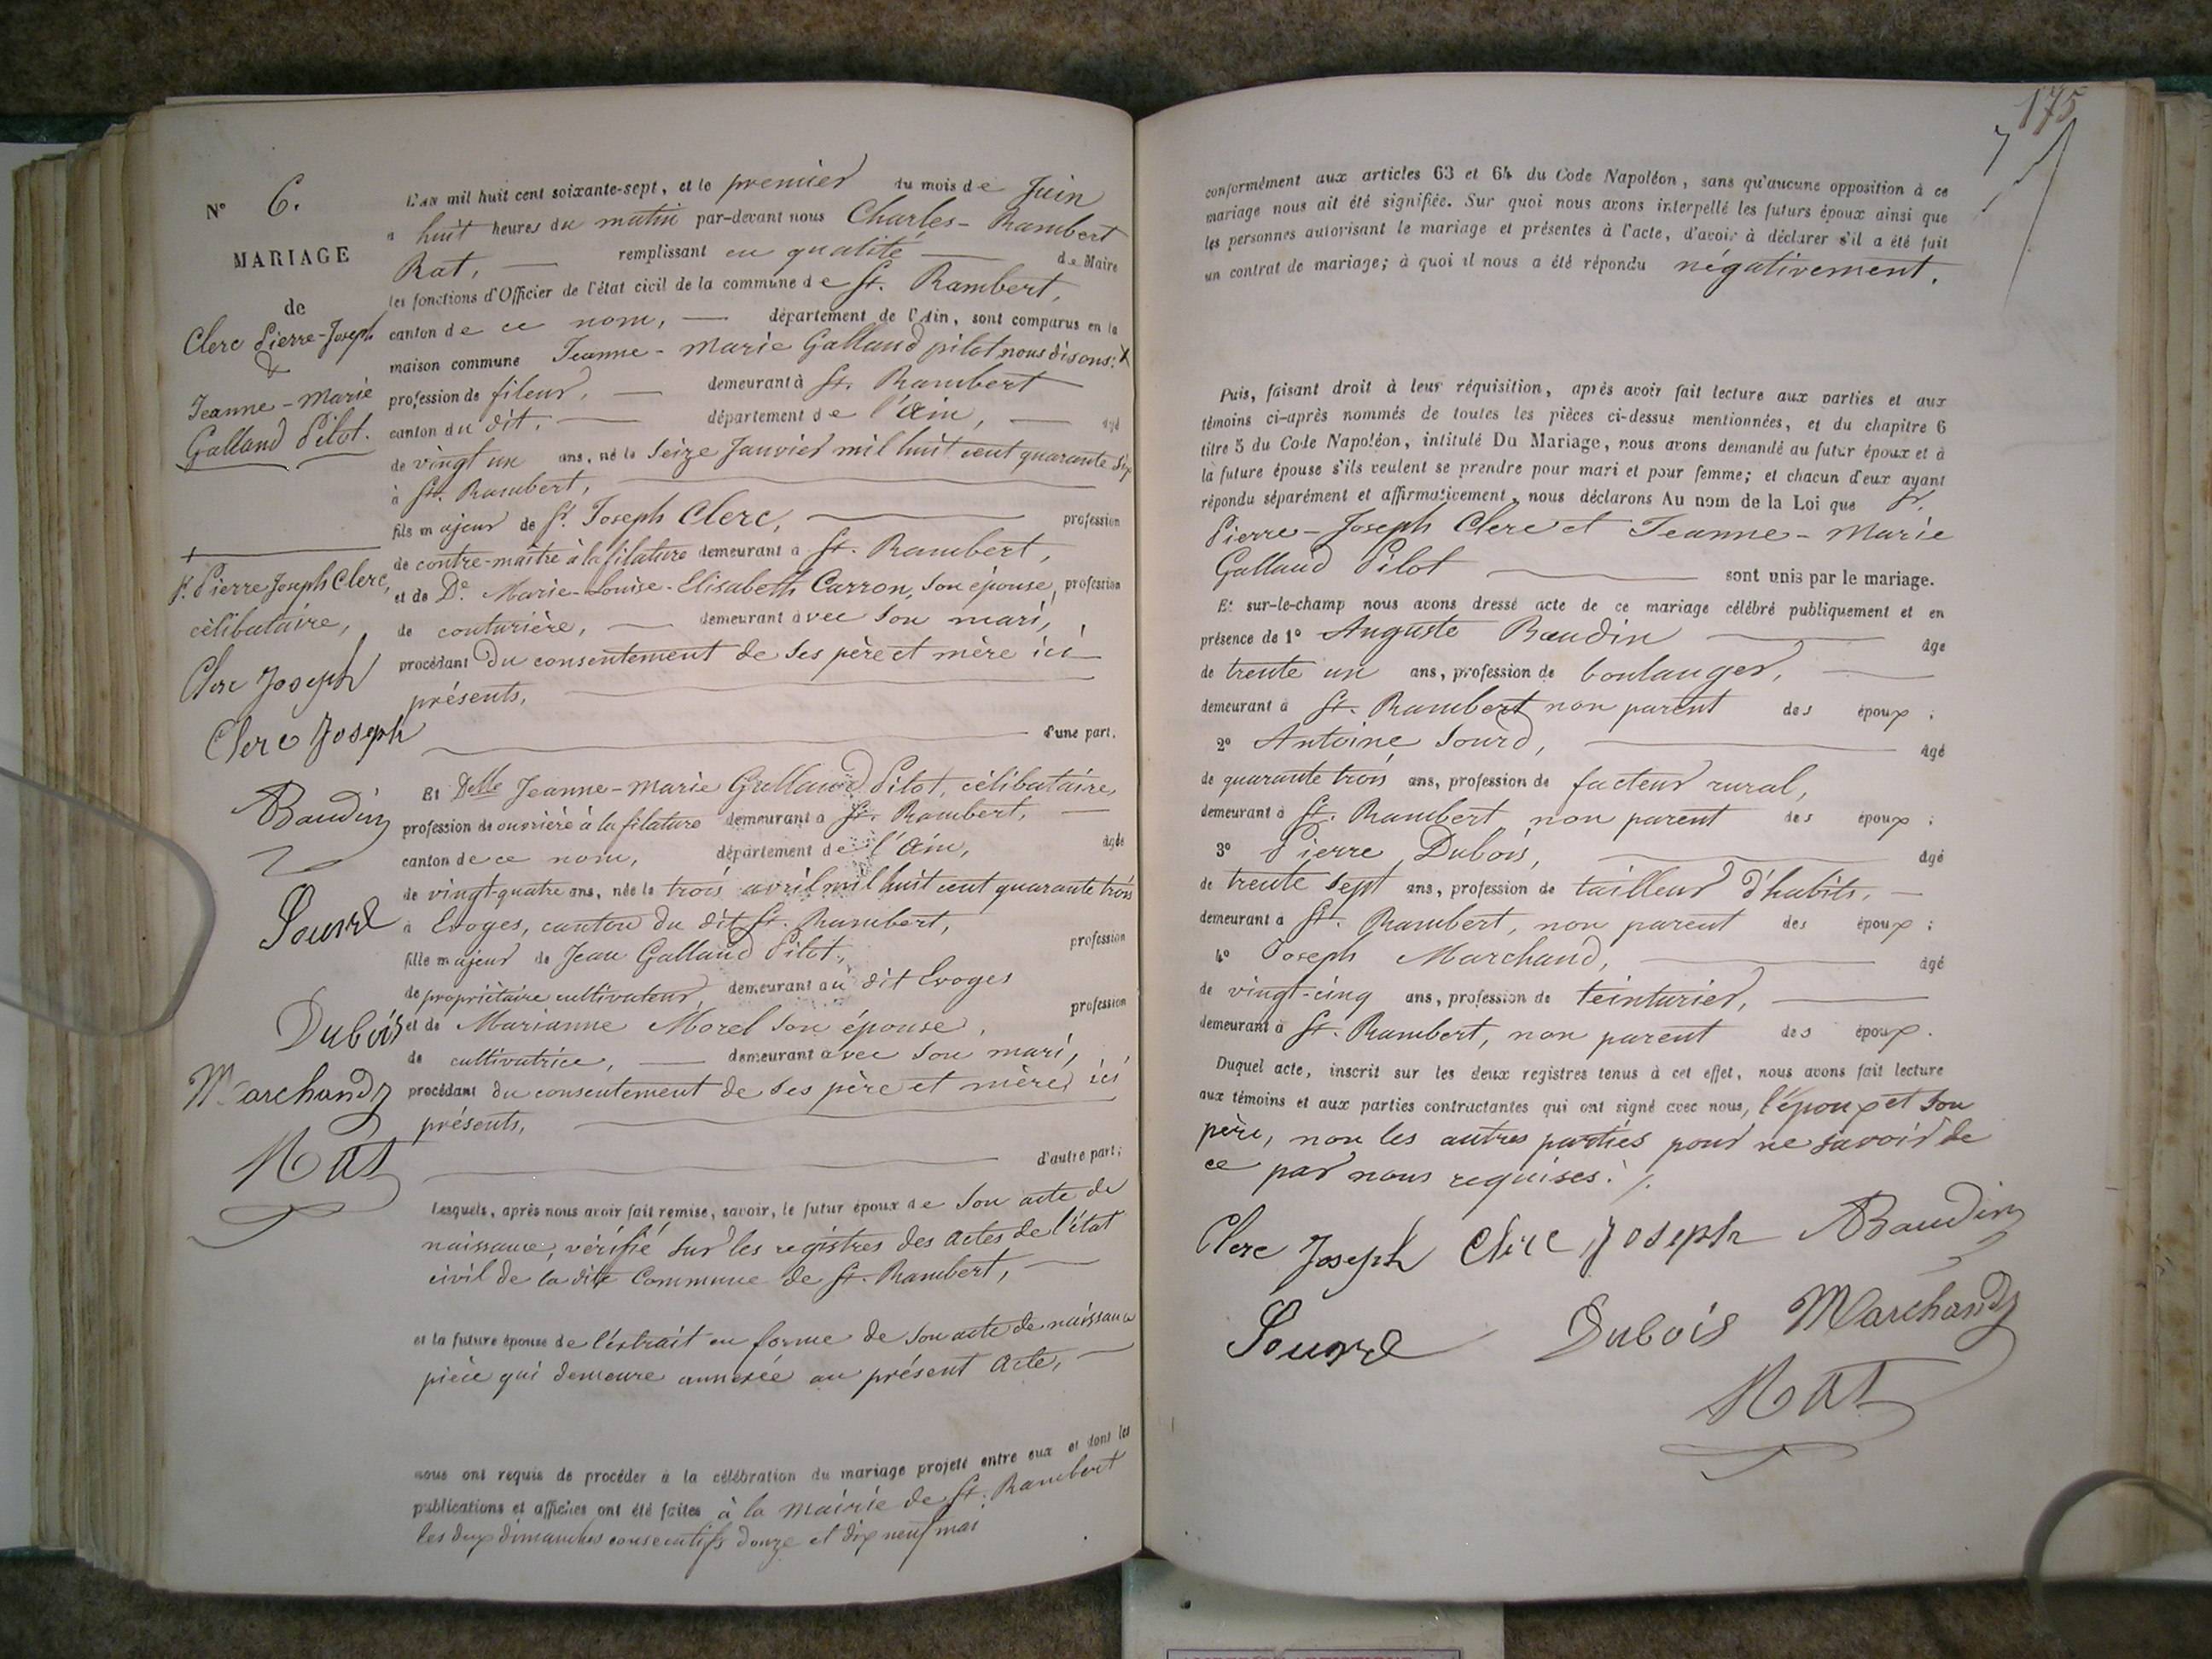 N° 6.
MARIAGE
de
Clerc Pierre-Joseph
&
Jeanne-Marie
Galland Pilot.
Sr. Pierre Joseph Clerc,
célibataire,
Clerc Joseph
Clerc Joseph
Baudin
Sourd
Dubois
Marchand
Rat
L'AN mil huit cent soixante-sept, et le premier du mois de Juin
à huit heures du matin par-devant nous Charles-Rambert
Rat, remplissant en qualité de Maire
les fonctions d'Officier de l'état civil de la commune de St. Rambert,
canton de ce nom, département de l'Ain, sont comparus en la
maison commune Jeanne-Marie Galland pilot nous disons: X
profession de fileur, demeurant à St. Rambert
canton du dit, département de l'Ain, âgé
de vingt un ans, né le seize Janvier mil huit cent quarante six
à St. Rambert,
fils majeur de Sr. Joseph Clerc, profession
de contre-maître à la filature demeurant à St. Rambert,
et de De. Marie-Louise-Elisabeth Carron, son épouse, profession
de couturière, demeurant avec son mari,
procédant du consentement de ses père et mère ici
présents,
d'une part.
Et Delle Jeanne-Marie Galland Pilot, célibataire,
profession de ouvrière à la filature demeurant à St. Rambert,
canton de ce nom, département de l'Ain, âgée
de vingt-quatre ans, née le trois avril mil huit cent quarante trois
à Evoges, canton du dit St. Rambert,
fille majeur de Jean Galland Pilot, profession
de propriétaire cultivateur, demeurant au dit Evoges
et de Marianne Morel son épouse, profession
de cultivatrice, demeurant avec son mari,
procédant du consentement de ses père et mère, ici
présents,
d'autre part;
Lesquels, après nous avoir fait remise, savoir, le futur époux de son acte de
naissance, vérifié sur les registres des actes de l'état
civil de la dite Commune de St. Rambert,
et la future épouse de l'extrait en forme de son acte de naissance
pièce qui demeure annexée au présent acte,
nous ont requis de procéder à la célébration du mariage projeté entre eux et dont les
publications et affiches ont été faites à la mairie de St. Rambert
les deux dimanches consecutifs douze et dix neuf mai
175
conformément aux articles 63 et 64 du Code Napoléon, sans qu'aucune opposition à ce
mariage nous ait été signifiée. Sur quoi nous avons interpellé les futurs époux ainsi que
les personnes autorisant le mariage et présentes à l'acte, d'avoir à déclarer s'il a été fait
un contrat de mariage; à quoi il nous a été répondu négativement.
Puis, faisant droit à leur réquisition, après avoir fait lecture aux parties et aux
témoins ci-après nommés de toutes les pièces ci-dessus mentionnées, et du chapitre 6
titre 5 du Code Napoléon, intitulé Du Mariage, nous avons demandé au futur époux et à
la future épouse s'ils veulent se prendre pour mari et pour femme; et chacun d'eux ayant
répondu séparément et affirmativement, nous déclarons Au nom de la Loi que Sr.
Pierre-Joseph Clerc et Jeanne-Marie
Galland Pilot sont unis par le mariage.
Et sur-le-champ nous avons dressé acte de ce mariage célébré publiquement et en
présence de 1° Auguste Baudin âgé
de trente un ans, profession de boulanger,
demeurant à St. Rambert non parent des époux;
2° Antoine Sourd, âgé
de quarante trois ans, profession de facteur rural,
demeurant à St. Rambert non parent des époux;
3° Pierre Dubois, âgé
de trente sept ans, profession de tailleur d'habits,
demeurant à St. Rambert, non parent des époux;
4° Joseph Marchand, âgé
de vingt-cinq ans, profession de teinturier,
demeurant à St. Rambert, non parent des époux.
Duquel acte, inscrit sur les deux registres tenus à cet effet, nous avons fait lecture
aux témoins et aux parties contractantes qui ont signé avec nous, l'époux et son
père, non les autres parties pour ne savoir de
ce par nous requises.
Clerc Joseph Clerc Joseph Baudin
Sourd Dubois Marchand
Rat